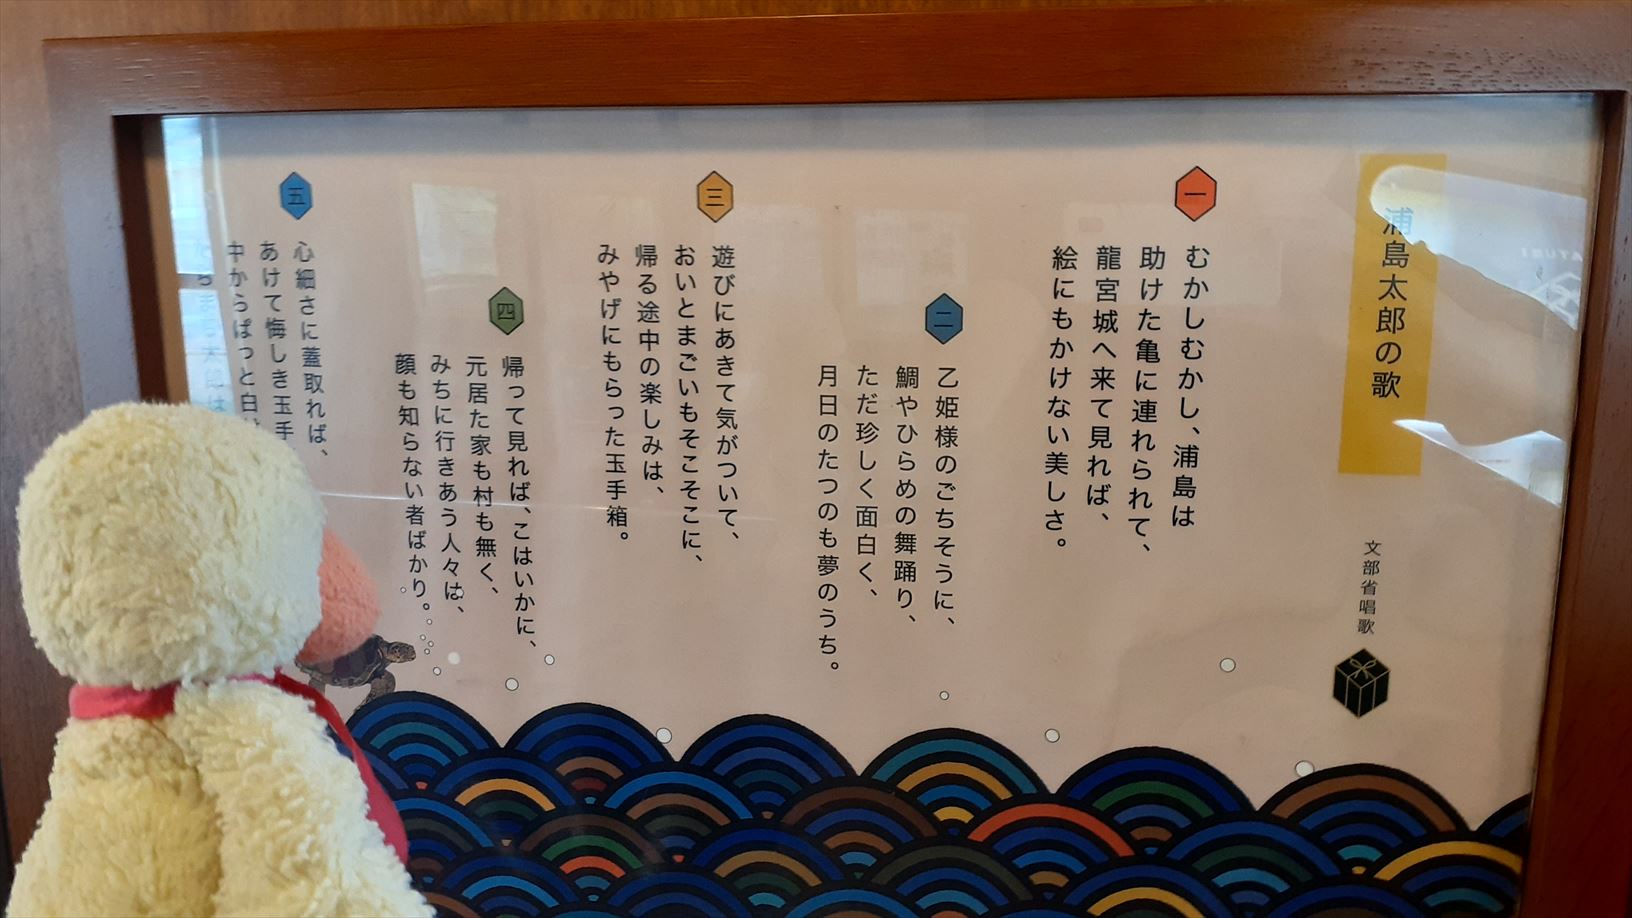 浦島太郎の歌
文部省唱歌
一
むかしむかし、浦島は
助けた亀に連れられて、
龍宮城へ来て見れば、
絵にもかけない美しさ。
二
乙姫様のごちそうに、
鯛やひらめの舞踊り、
ただ珍しく面白く、
月日のたつのも夢のうち。
三
遊びにあきて気がついて、
おいとまごいもそこそこに、
帰る途中の楽しみは、
みやげにもらった玉手箱。
四
帰って見れば、こはいかに、
元居た家も村も無く、
みちに行きあう人々は、
顔も知らない者ばかり。
五
心細さに蓋取れば、
あけて悔しき玉手
中からぱっと白